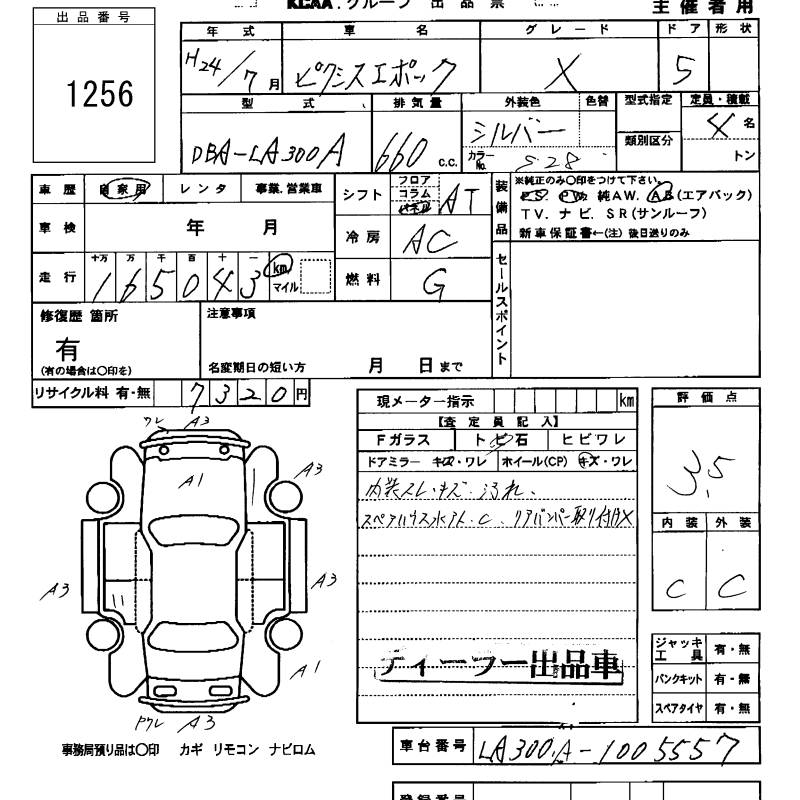 KCAA.グループ 出品票
主催者用
出品番号
1256
年式 車名 グレード ドア 形状
H24/7月 ピクシスエポック X 5
型式 排気量 外装色 色替 型式指定 定員・積載
DBA-LA300A 660 c.c. シルバー カラーNo. S28 類別区分 4名
トン
車歴 自家用 レンタ 事業.営業車
シフト フロア コラム パネル AT
装備品 ※純正のみ〇印をつけて下さい。
PS PW 純AW. AB(エアバック)
TV. ナビ. SR(サンルーフ)
新車保証書←(注) 後日送りのみ
車検 年 月
冷房 AC
走行 十万 万 千 百 十 一
165043 km マイル
燃料 G
セールスポイント
修復歴 箇所
有
(有の場合は〇印を)
注意事項
名変期日の短い方 月 日まで
リサイクル料 有・無 7320円
現メーター指示 km
【査定員記入】
Fガラス トビ石 ヒビワレ
ドアミラー キズ・ワレ ホイール(CP) キズ・ワレ
内装スレ・キズ・汚れ、
スペアハウス水アト.C、リアバンパー取り付けX
評価点
3.5
内装 外装
C C
ワレ A3
A1
A3
A3
A3
A1
Pワレ A3
ディーラー出品車
ジャッキ工具 有・無
パンクキット 有・無
スペアタイヤ 有・無
事務局預り品は〇印 カギ リモコン ナビロム
車台番号 LA300A-1005557
登録番号